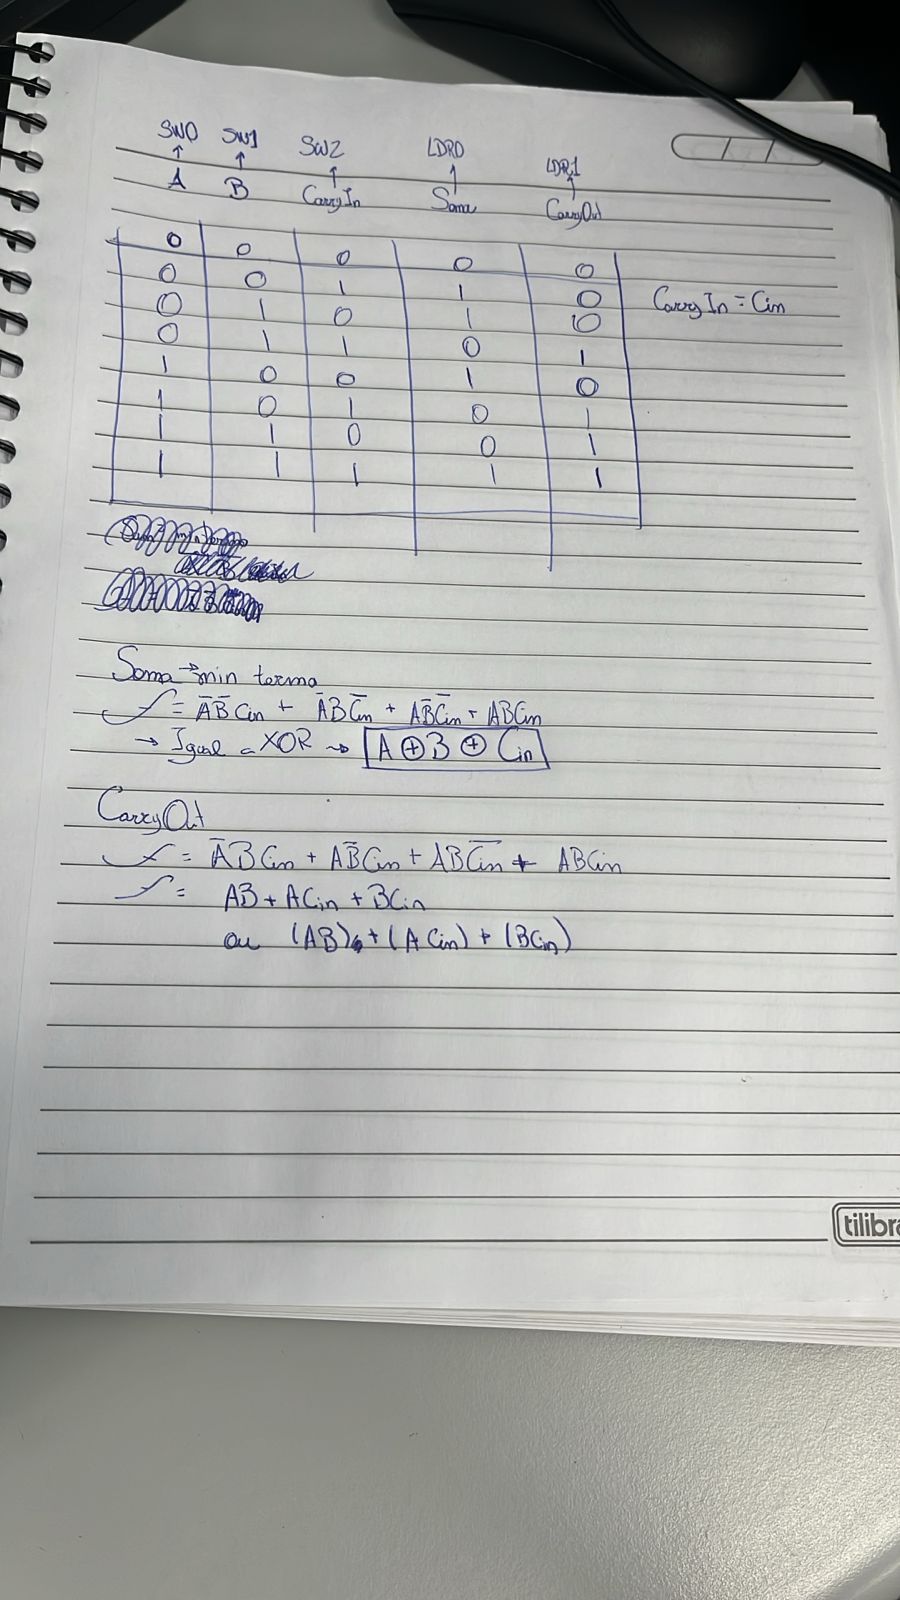 SW0 SW1 SW2 LDR0 LDR1
A B CarryIn Soma CarryOut
0 0 0 0 0
0 0 1 1 0
0 1 0 1 0
0 1 1 0 1
1 0 0 1 0
1 0 1 0 1
1 1 0 0 1
1 1 1 1 1
CarryIn = Cin
Soma → min termo
f = A̅B̅Cin + A̅BC̅i̅n̅ + AB̅C̅i̅n̅ + ABCin
→ Igual a XOR → A ⊕ B ⊕ Cin
CarryOut
f = A̅BCin + AB̅Cin + ABC̅i̅n̅ + ABCin
f = AB + ACin + BCin
ou (AB) + (ACin) + (BCin)
tilibra